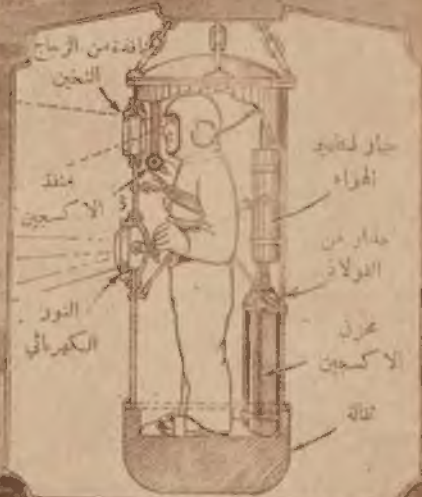 نافذة من الزجاج
الثخين
منفذ
الاكسجين
النور
الكهربائي
جهاز لتطهير
الهواء
جدار من
الفولاذ
مخزن
الاكسجين
ثقالة